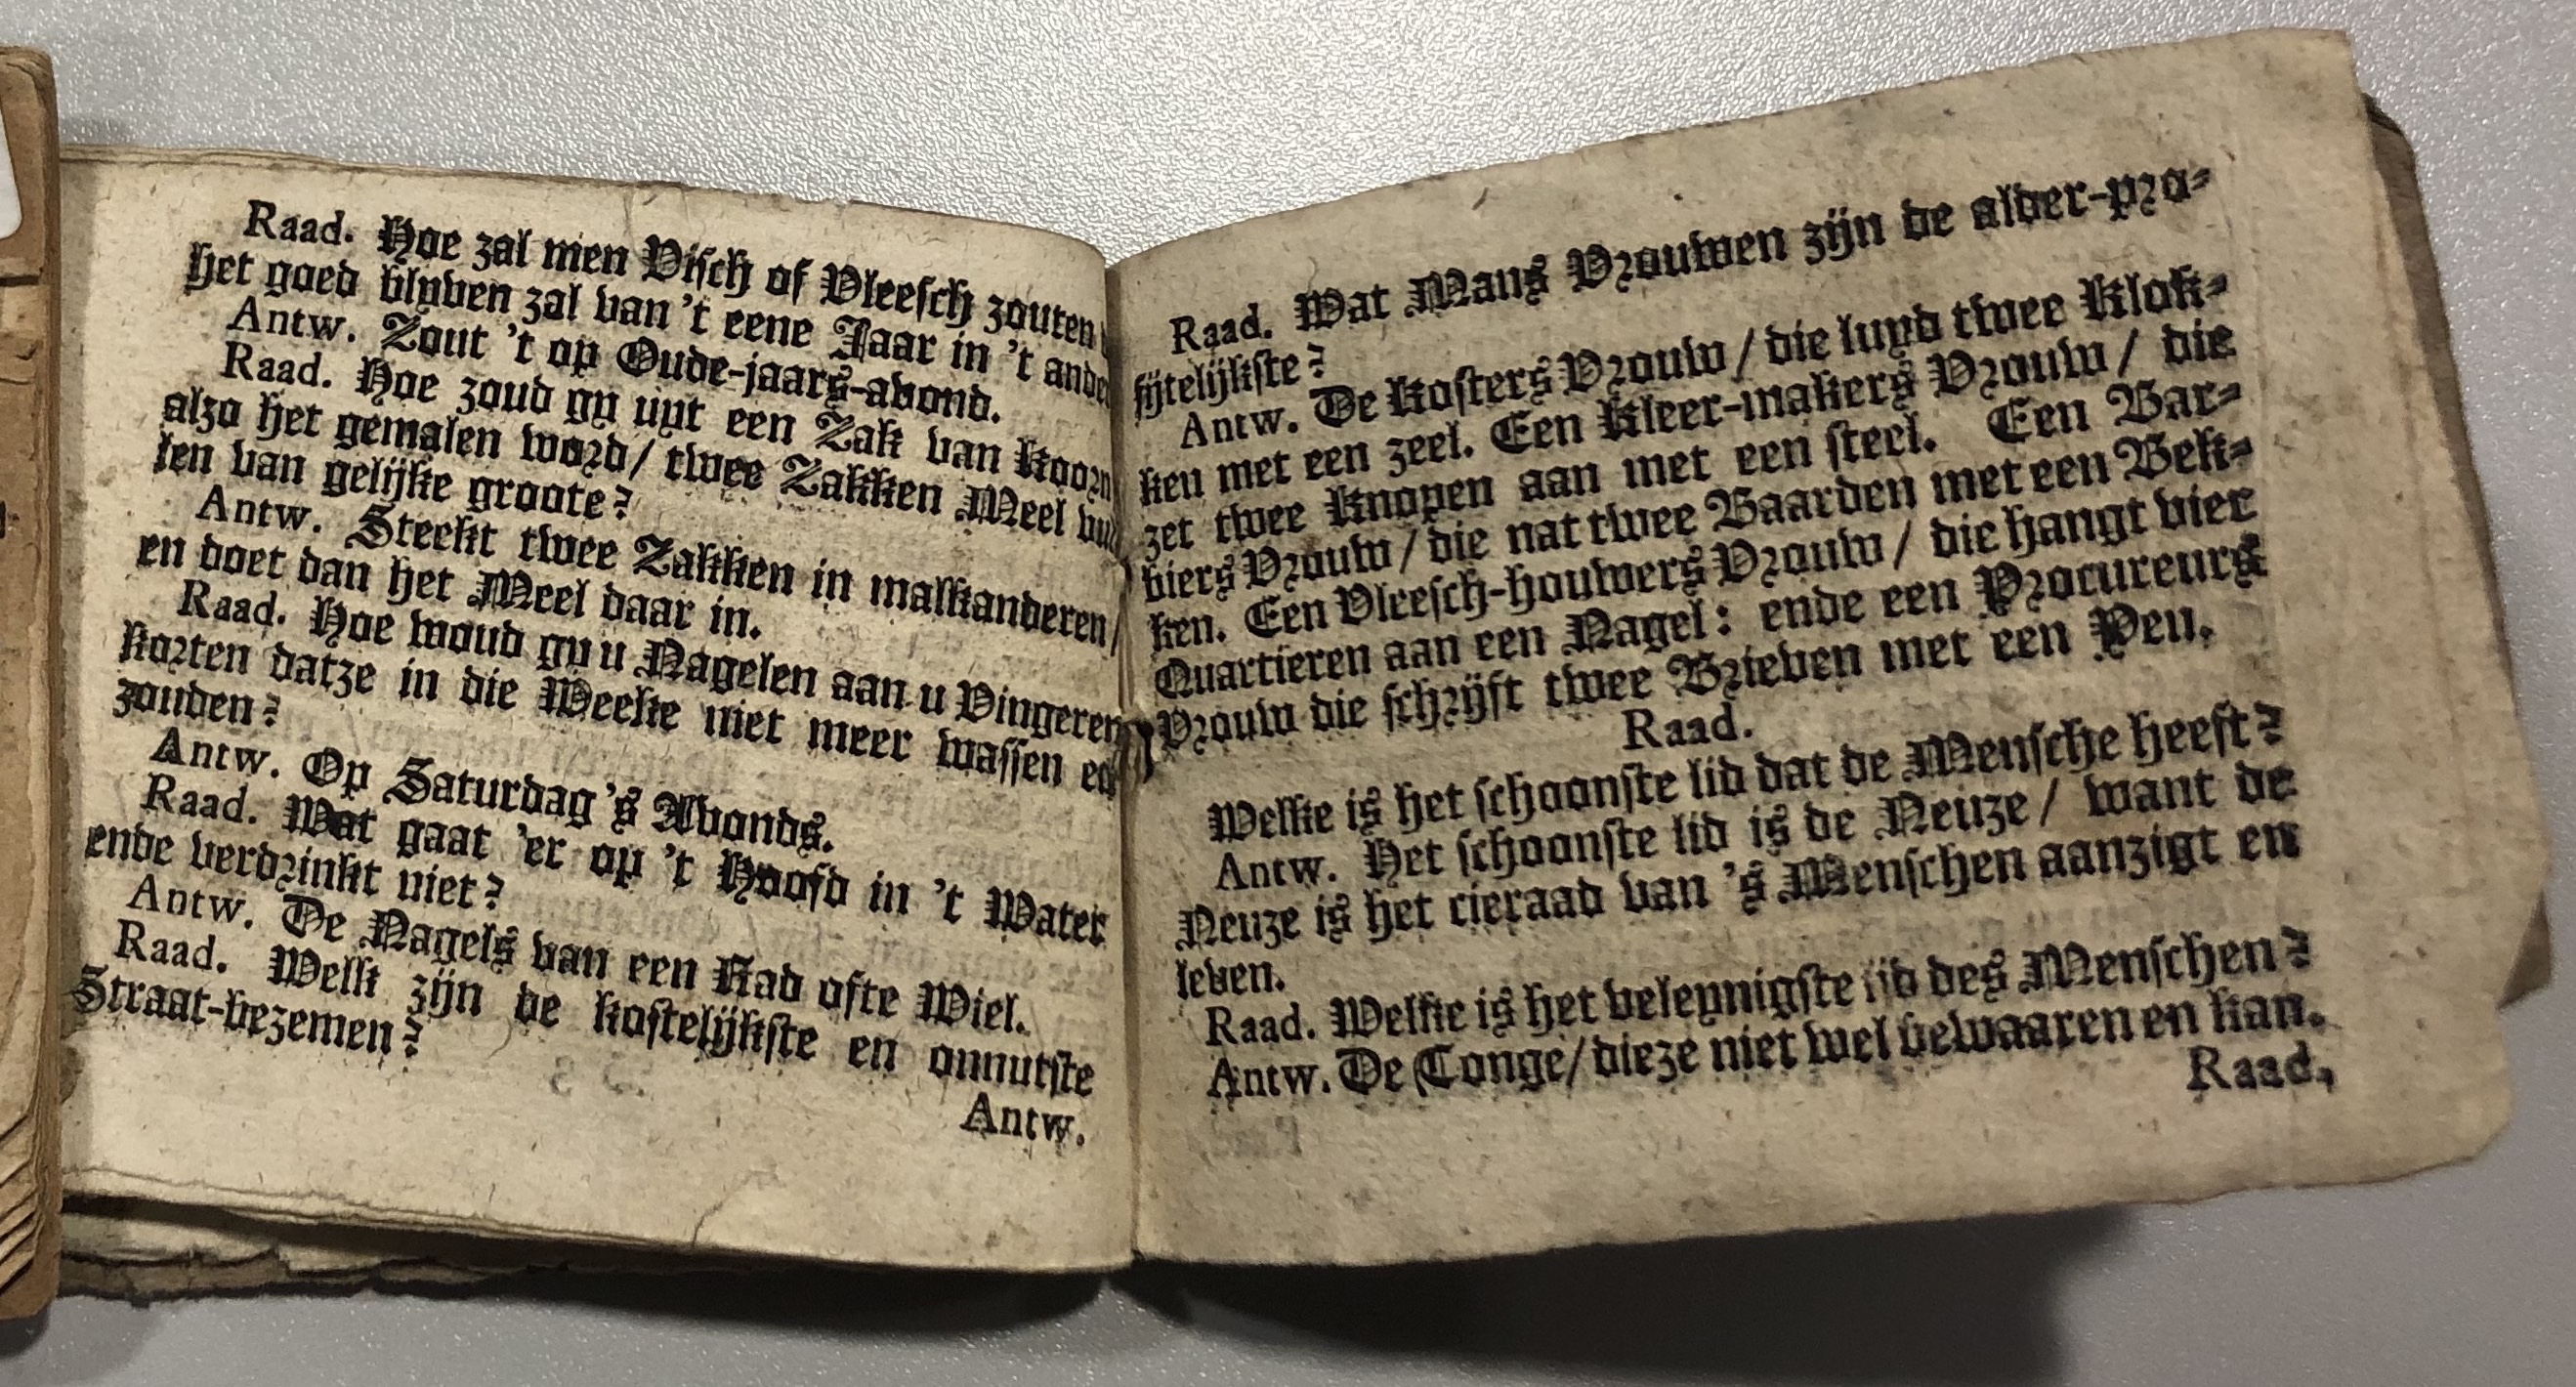 Raad. Hoe zal men Visch of Vleesch zouten
het goed blyven zal van 't eene Jaar in 't ander
Antw. Zout 't op Oude-jaars-avond.
Raad. Hoe zoud gy uyt een Zak van Koorn
alzo het gemalen word/ twee Zakken Meel vul
len van gelijke groote?
Antw. Steekt twee Zakken in malkanderen/
en doet dan het Meel daar in.
Raad. Hoe woud gy u Nagelen aan u Vingeren
korten datze in die Weeke niet meer wassen en
zouden?
Antw. Op Saturdag 's Avonds.
Raad. Wat gaat 'er op 't Hoofd in 't Water
ende verdrinkt niet?
Antw. De Nagels van een Rad ofte Wiel.
Raad. Welk zijn de kostelijkste en onnutste
Straat-bezemen?
Antw.
Raad. Wat Mans Vrouwen zijn de alder-pro-
fijtelijkste?
Antw. De Kosters Vrouw / die luyd twee Klok-
ken met een zeel. Een Kleer-makers Vrouw / die
zet twee Knopen aan met een steel. Een Bar-
biers Vrouw / die nat twee Baarden met een Bek-
ken. Een Vleesch-houwers Vrouw / die hangt vier
Quartieren aan een Nagel: ende een Procureurs
Vrouw die schrijft twee Brieven met een Pen.
Raad.
Welke is het schoonste lid dat de Mensche heeft?
Antw. Het schoonste lid is de Neuze / want de
Neuze is het cieraad van 's Menschen aanzigt en
leven.
Raad. Welke is het veleynigste lid des Menschen?
Antw. De Tonge/ dieze niet wel bewaaren en kan.
Raad.